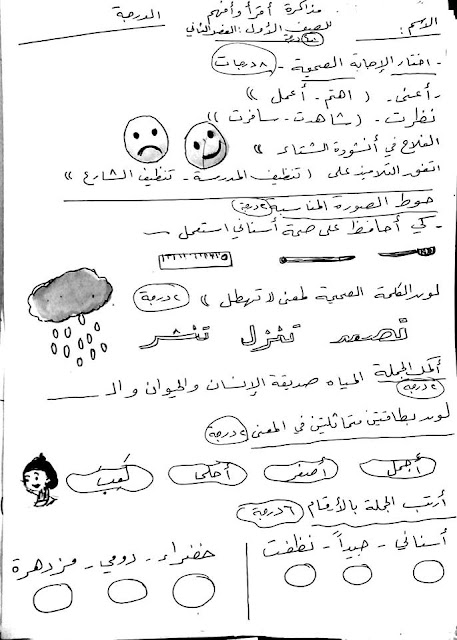 مذاكرة أقرأ وأفهم
الدرجة
الاسم:
للصف الأول: الفصل الثاني
درجة
- اختار الإجابة الصحيحة - ٨ درجات
- أعتني - ( اهتم - أعمل )
نظرت - ( شاهدت - سافرت )
الفلاح في أنشودة الشتاء )
اتفق التلاميذ على ( تنظيف المدرسة - تنظيف الشارع )
حوط الصورة المناسبة ٢ درجة
- كي أحافظ على صحة أسناني استعمل
لون الكلمة الصحيحة لمعنى لا تهطل ) ٢ درجة
تصعد تنزل تنشر
أكمل الجملة المياه صديقة الإنسان والحيوان والـ ــــ
٢ درجة
لون بطاقتين متماثلتين في المعنى ٢ درجة
أجمل أصفر أحلى كعب
أرتب الجملة بالأرقام ٦ درجة
أسناني - جيداً - نظفت
خضراء - دومي - مزدهرة